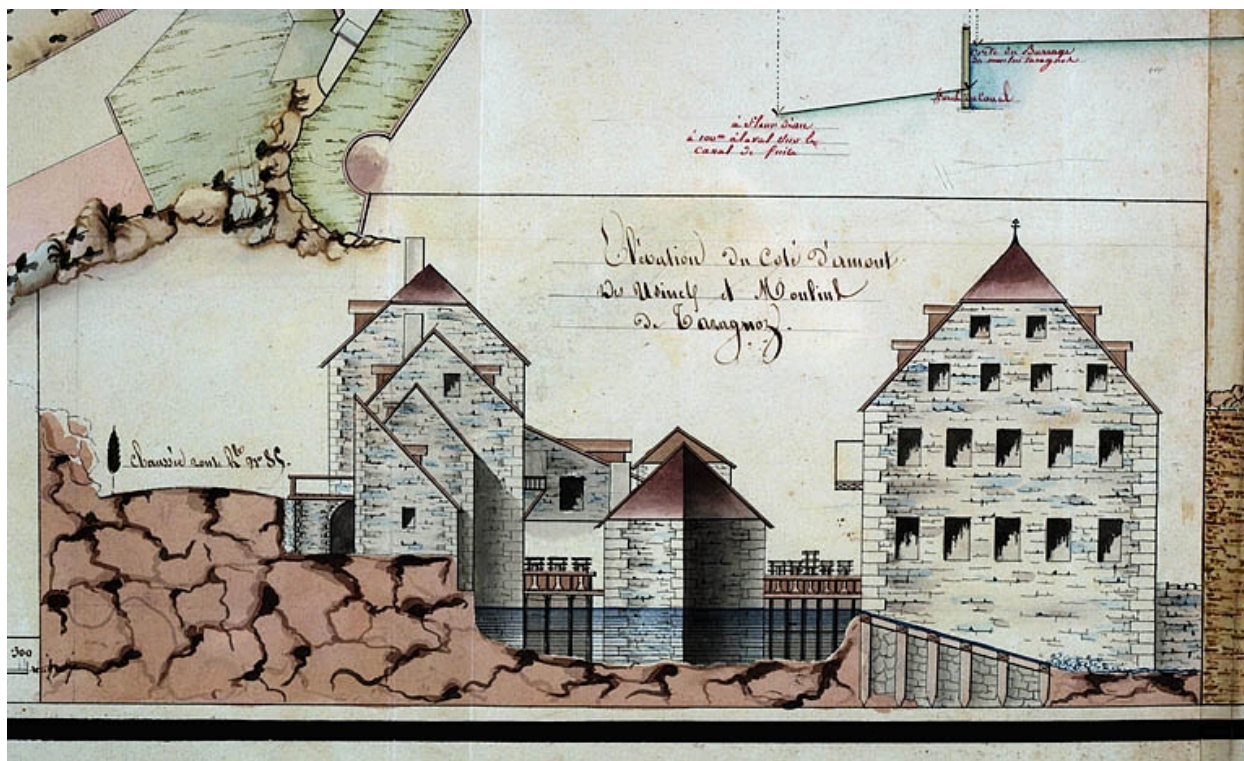 Crête du Barrage
du moulin taragnoz
fond du Canal
à fleur d'eau
à 100m à laval sur le
Canal de fuite
Elévation du Coté d'amont
Des Usines et Moulins
de Taragnoz.
chaussée route Rle n° 85.
300